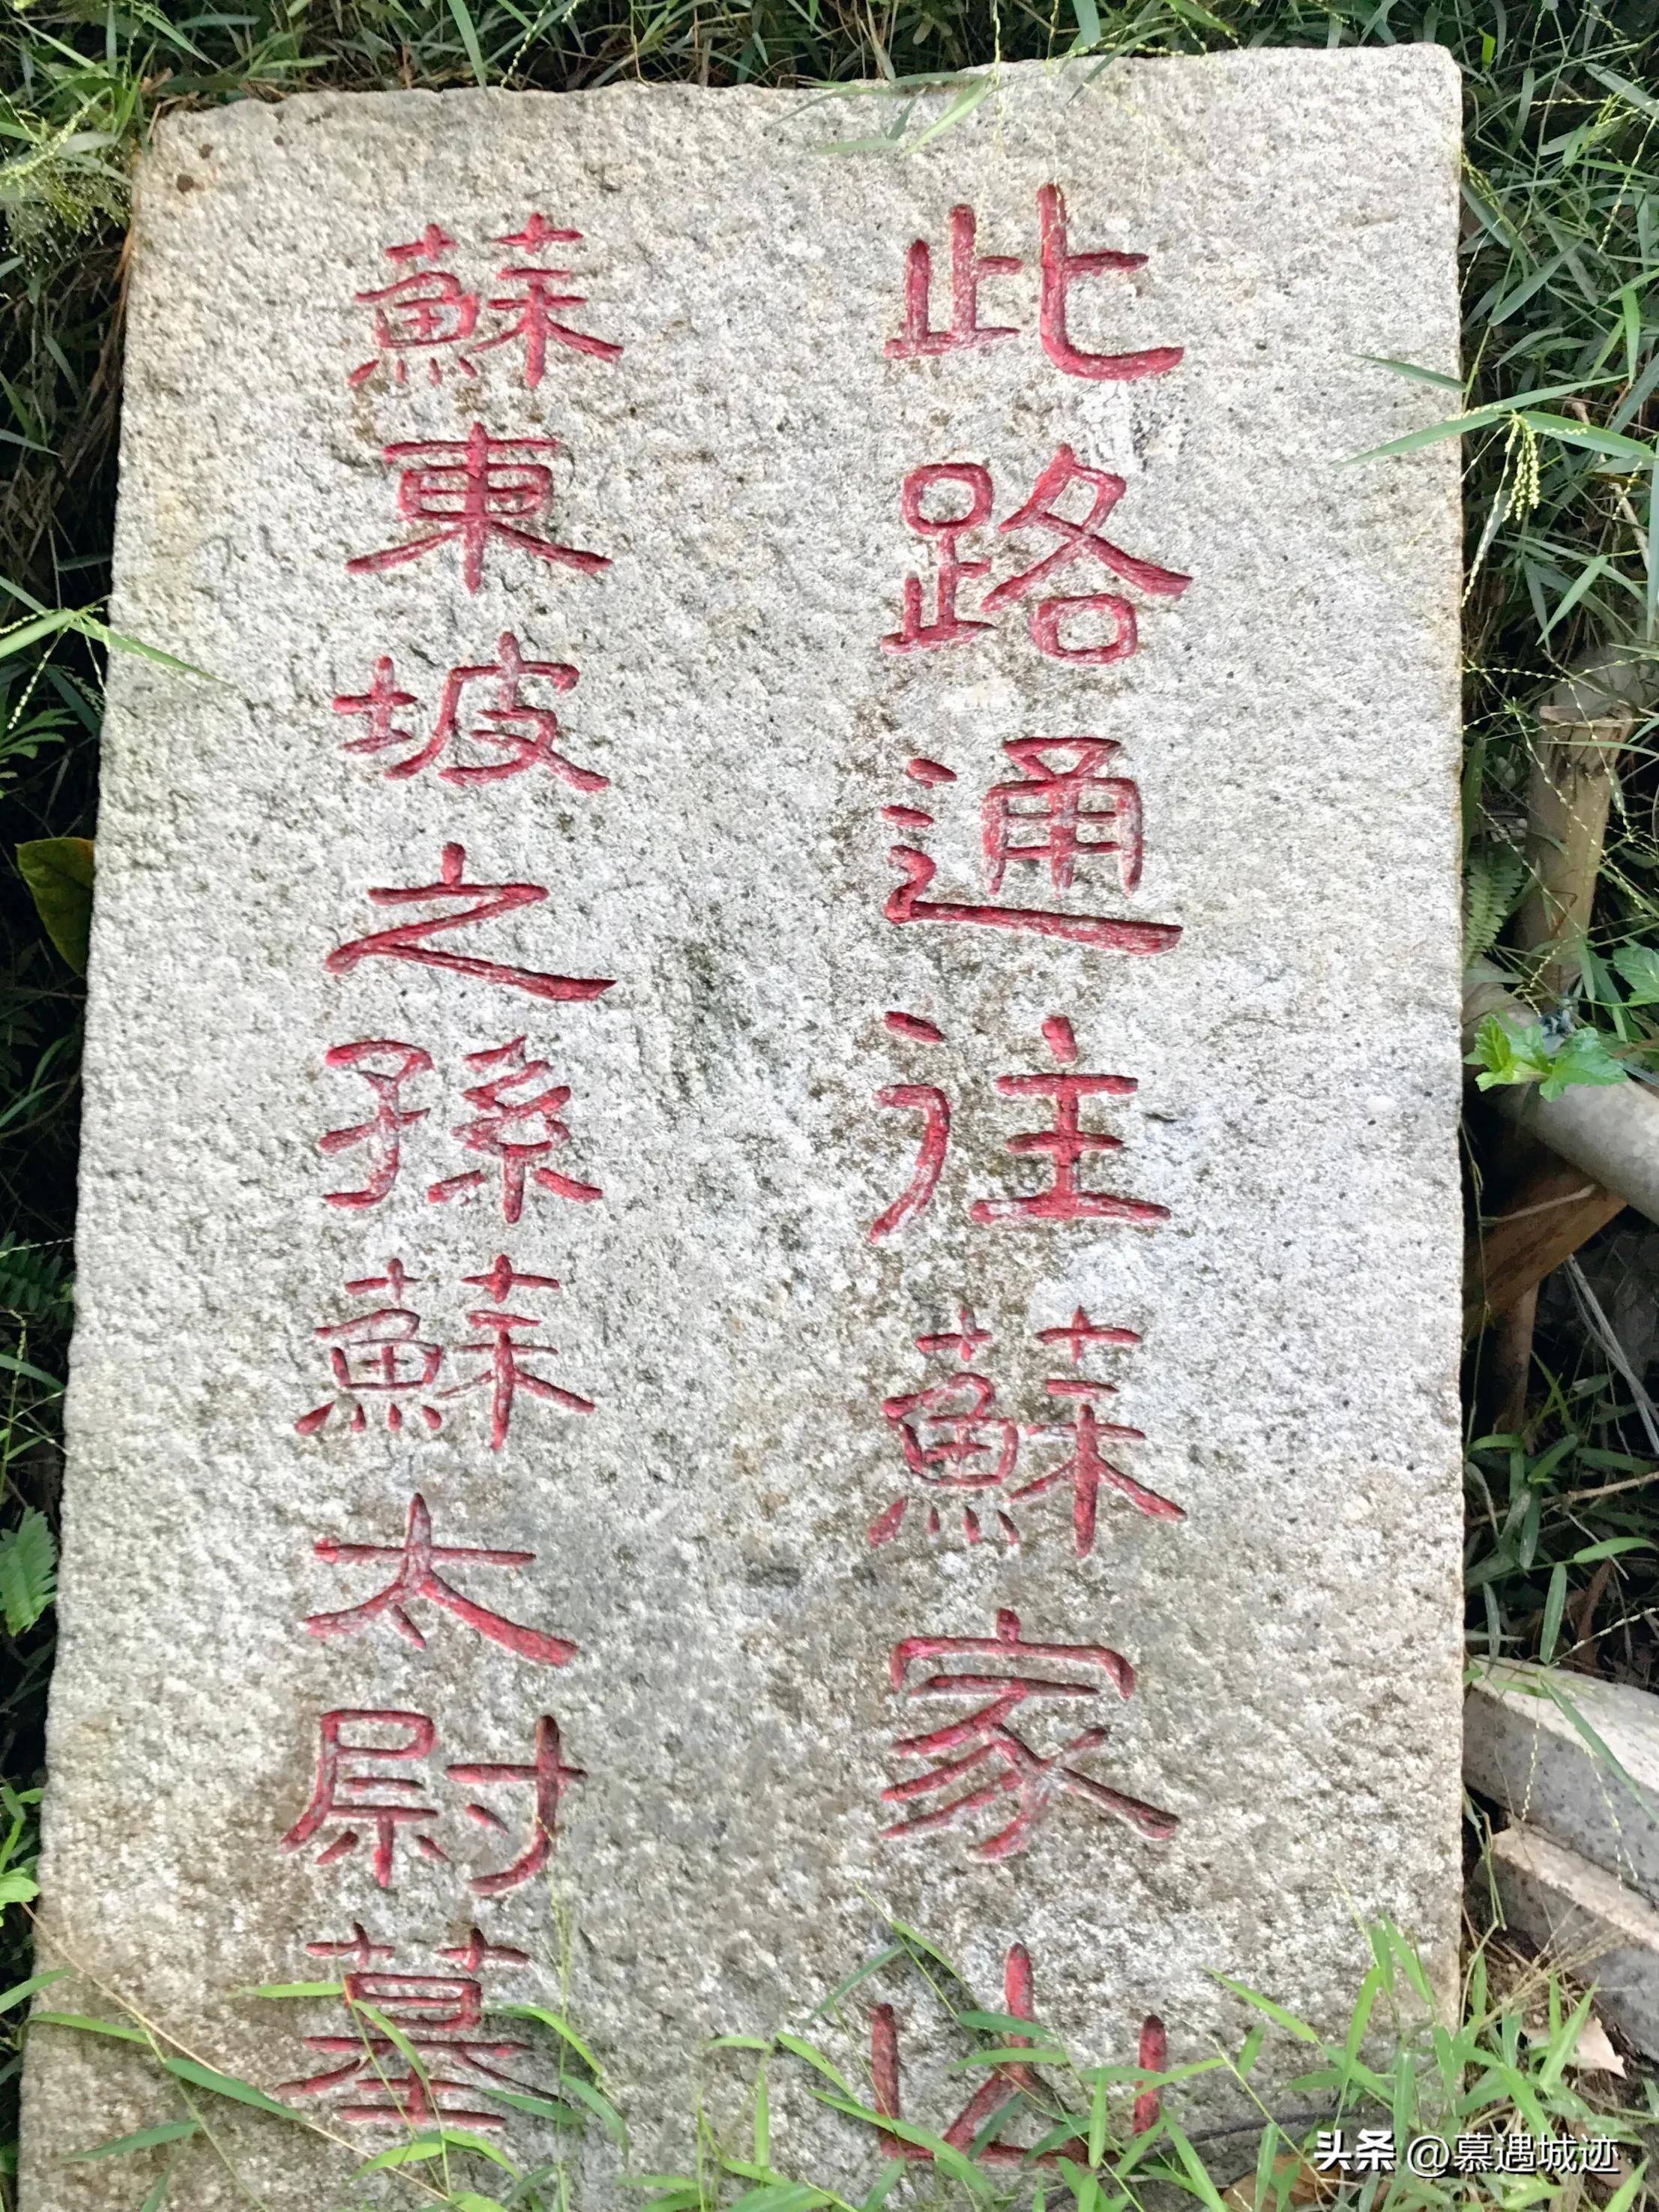 此路通往蘇家山
蘇東坡之孫蘇太尉墓
头条 @慕遇城迹